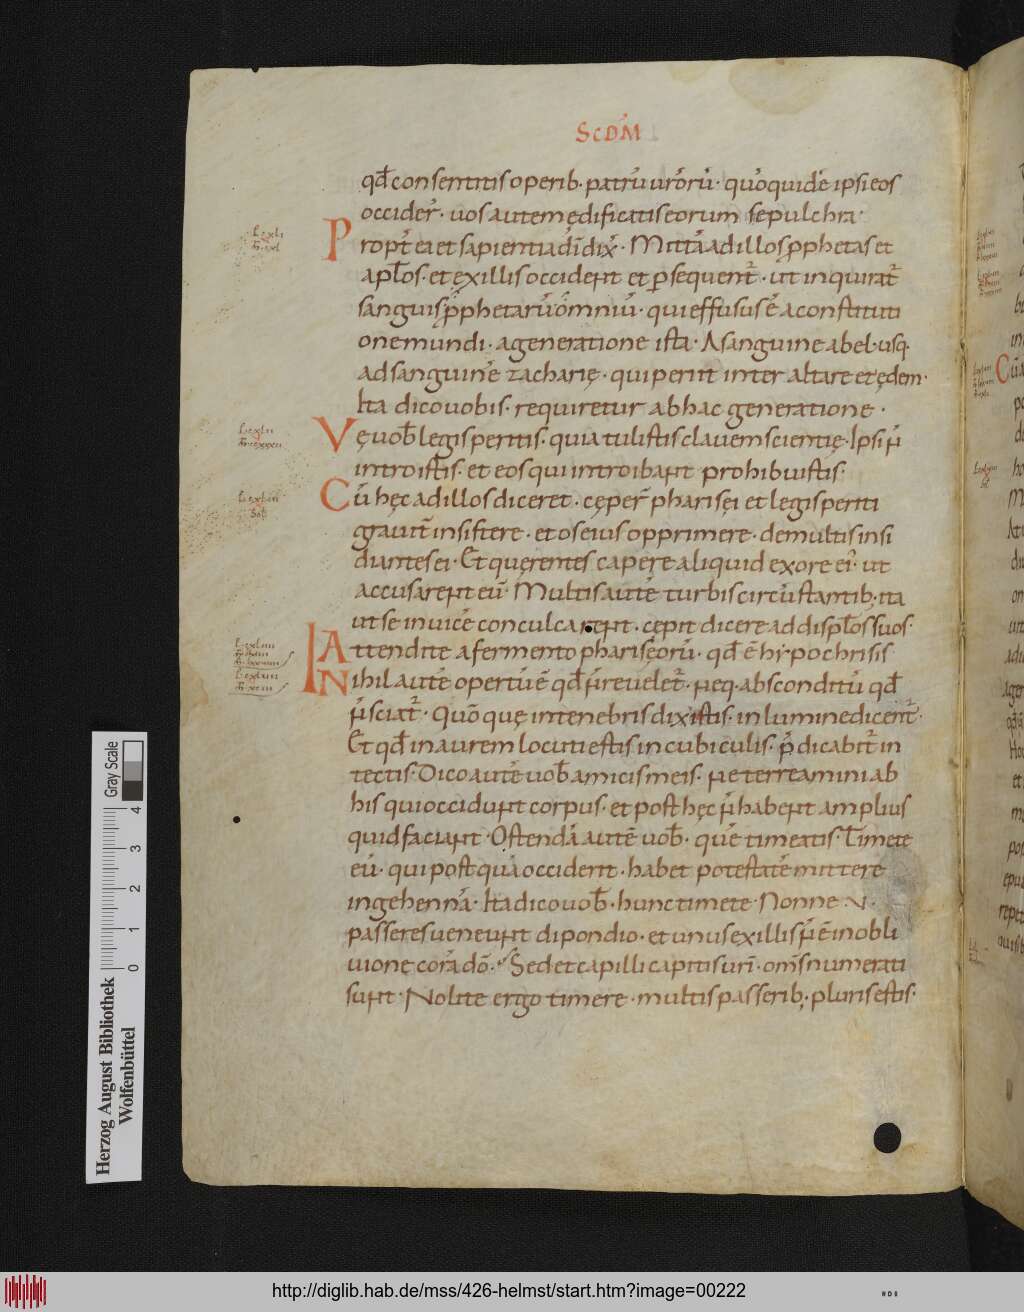 SCDM̄
qđ consentitis operib. patrū ur̄orū. quo͞quidē ipsi eos
occider̄. uos autem ędificatis eorum sepulchra.
Propt̄ ea et sapientia dī dix̄. Mittā ad illos ꝓphetas et
aplōs. et ex illis occident et ꝑsequent̄. ut inquirat̄
sanguis ꝓphetarū om̄niū. qui effusus ē a constituti
one mundi. a generatione ista. A sanguine abel. usq.
ad sanguinē zacharię. qui periit inter altare et ędem.
Ita dico uobis. requiretur ab hac generatione.
Vę uob̄ legisperitis. quia tulistis clauem scientię. Ipsi n̄
introistis. et eos qui introibant prohibuistis.
Cū hęc ad illos diceret. cęper̄ pharisęi et legisperiti
grauit̄ insistere. et os eius opprimere. de multis insi
diantes ei. Et querentes capere aliquid ex ore ei᾿. ut
accusarent eū. Multis autē turbis circū stantib. ita
ut se inuicē conculcarent. cepit dicere ad displ̄os suos.
Attendite a fermento phariseorū. qđ ē hypochrisis
Nihil autē opertū ē qđ n̄ reuelet̄. neq. absconditū qđ
n̄ sciat̄. Quō quę in tenebris dixistis. in lumine dicent̄.
Et qđ in aurem locuti estis in cubiculis. p̄dicabit̄ in
tectis. Dico autē uob̄ amicis meis. ne terreamini ab
his qui occidunt corpus. et post hęc n̄ habent amplius
quid faciant. Ostendā autē uob̄. quē timeatis. Timete
eū. qui post quā occiderit. habet potestatē mittere
in gehennā. Ita dico uob̄. hunc timete. Nonne V.
passeres ueneunt dipondio. et unus ex illis n̄ ē in obli
uione corā dō. Sed et capilli capitis ur̄i. om̄s numerati
sunt. Nolite ergo timere. multis passerib; pluris estis.
Gray Scale
4
3
2
1
0
Herzog August Bibliothek
Wolfenbüttel
http://diglib.hab.de/mss/426-helmst/start.htm?image=00222